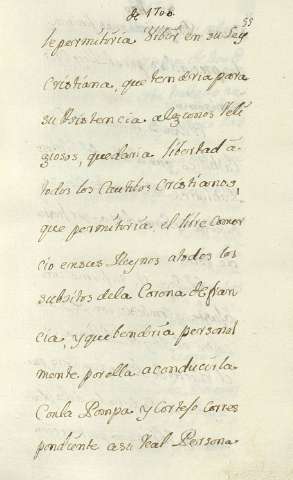 de 1700.
55
le permitiria Vibir en su Ley
Cristiana, que tendria para
su Asistencia algunos Reli
giosos, que daria libertad â
todos los Cautibos Cristianos,
que permitiria el libre Comer
cio en sus Reynos a todos los
subditos de la Corona de fran
cia, y que bendria personal
mente por ella a conducirla
Con la Pompa y Cortejo Corres
pondiente a su Real Persona